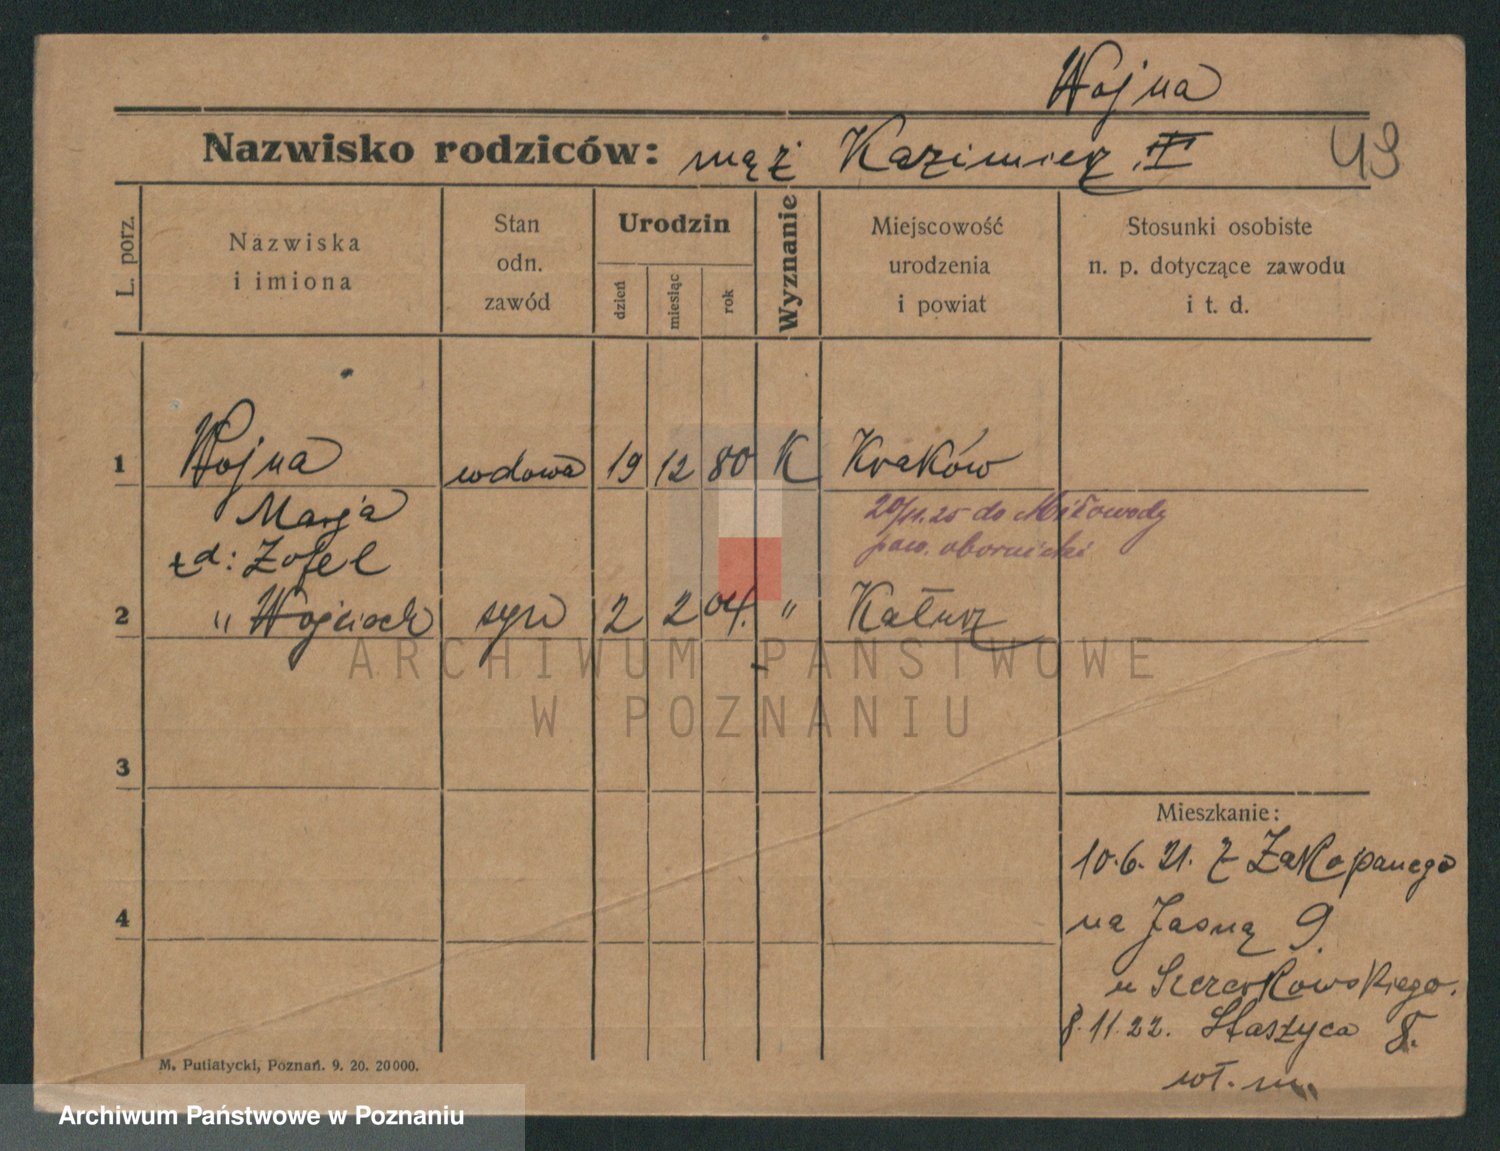 Wojna
Nazwisko rodziców: mąż Kazimierz II
49
L. porz.
Nazwiska
i imiona
Stan
odn.
zawód
Urodzin
dzień
miesiąc
rok
Wyznanie
Miejscowość
urodzenia
i powiat
Stosunki osobiste
n. p. dotyczące zawodu
i t. d.
1 Wojna wdowa 19 12 80 K Kraków
Marja
20/11.25 do Miłowody
pow. obornicki
zd: Zofel
2 " Wojciech syn 2 2 04. " Kałusz
ARCHIWUM PAŃSTWOWE
W POZNANIU
3
Mieszkanie:
10.6.21. z Zakopanego
4
na Jasną 9.
u
8.11.22. Staszyca 8.
wł. m.
M. Putiatycki, Poznań. 9. 20. 20000.
Archiwum Państwowe w Poznaniu